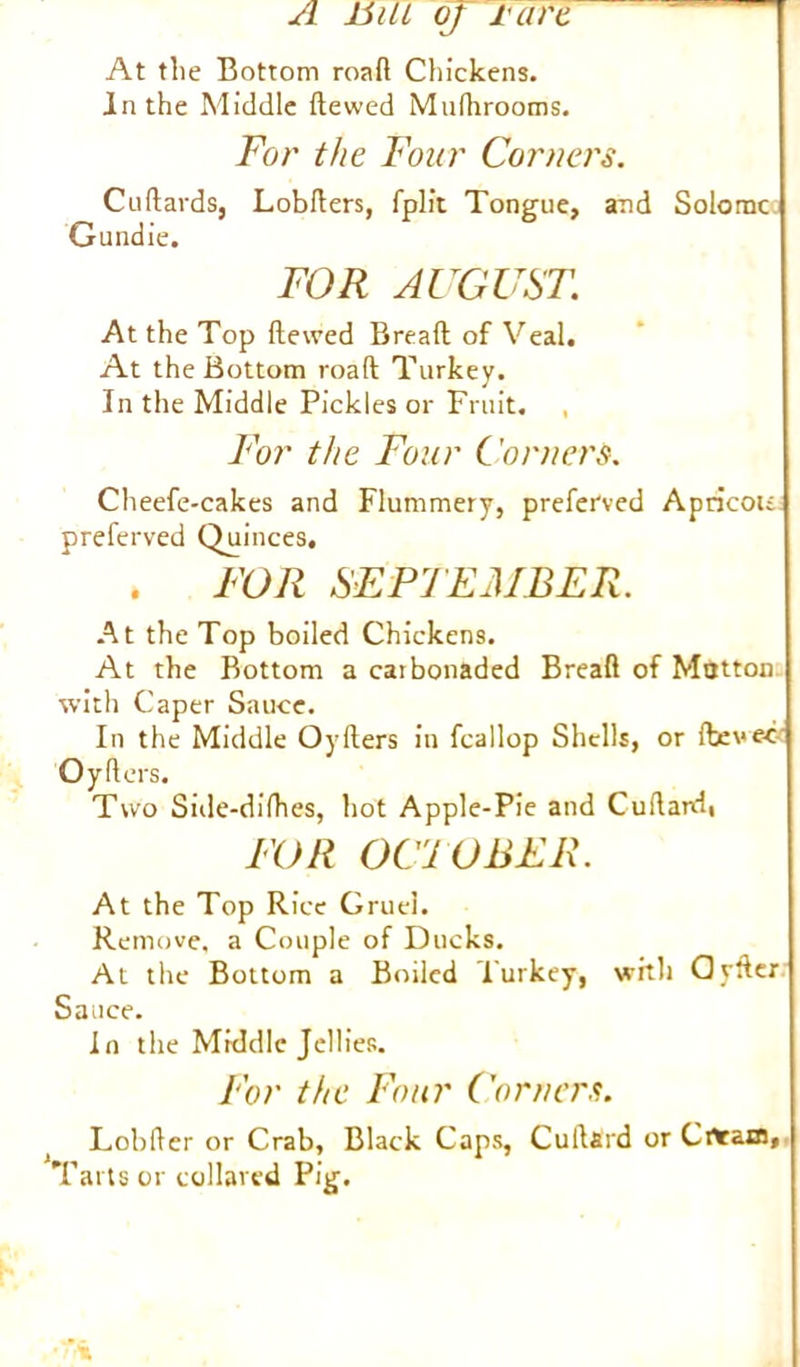 A Bill of Fare
At the Bottom roaſt Chickens.
In the Middle ſtewed Muſhrooms.
For the Four Corners.
Cuſtards, Lobſters, ſplit Tongue, and Solomc
Gundie.
FOR AUGUST.
At the Top ſtewed Breaſt of Veal.
At the Bottom roaſt Turkey.
In the Middle Pickles or Fruit.
For the Four Corners.
Cheeſe-cakes and Flummery, preſerved Apricots
preſerved Quinces.
FOR SEPTEMBER.
At the Top boiled Chickens.
At the Bottom a carbonaded Breaſt of Mutton
with Caper Sauce.
In the Middle Oyſters in ſcallop Shells, or ſtewed
Oyſters.
Two Side-diſhes, hot Apple-Pie and Cuſtard,
FOR OCTOBER.
At the Top Rice Gruel.
Remove, a Couple of Ducks.
At the Bottom a Boiled Turkey, with Oyſter
Sauce.
In the Middle Jellies.
For the Four Corners.
Lobſter or Crab, Black Caps, Cuſtard or Cream,
Tarts or collared Pig.